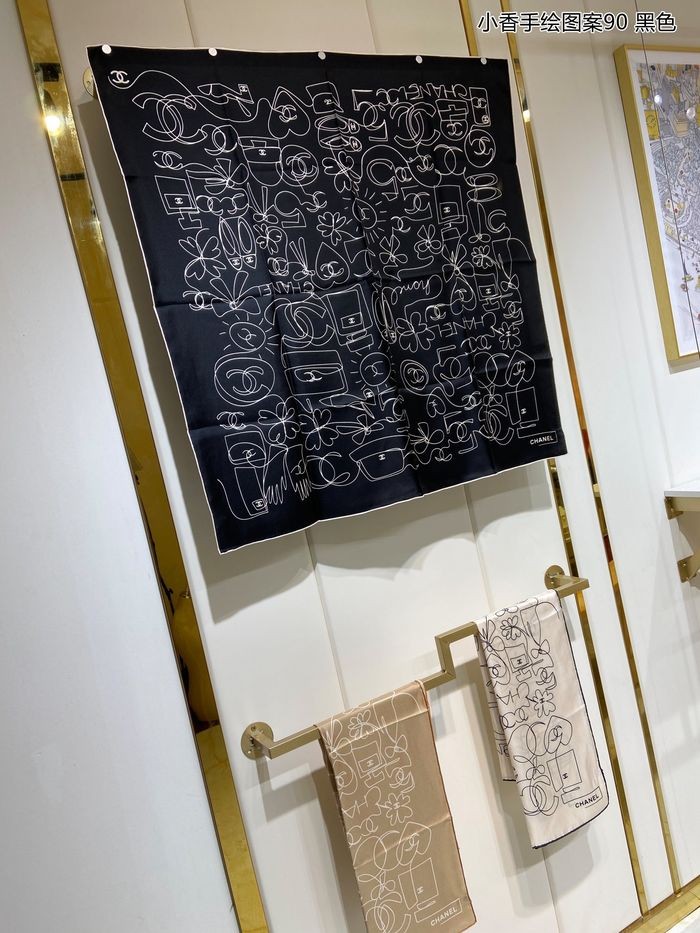 小香手绘图案90 黑色
CHANEL
CHANEL
CHANEL